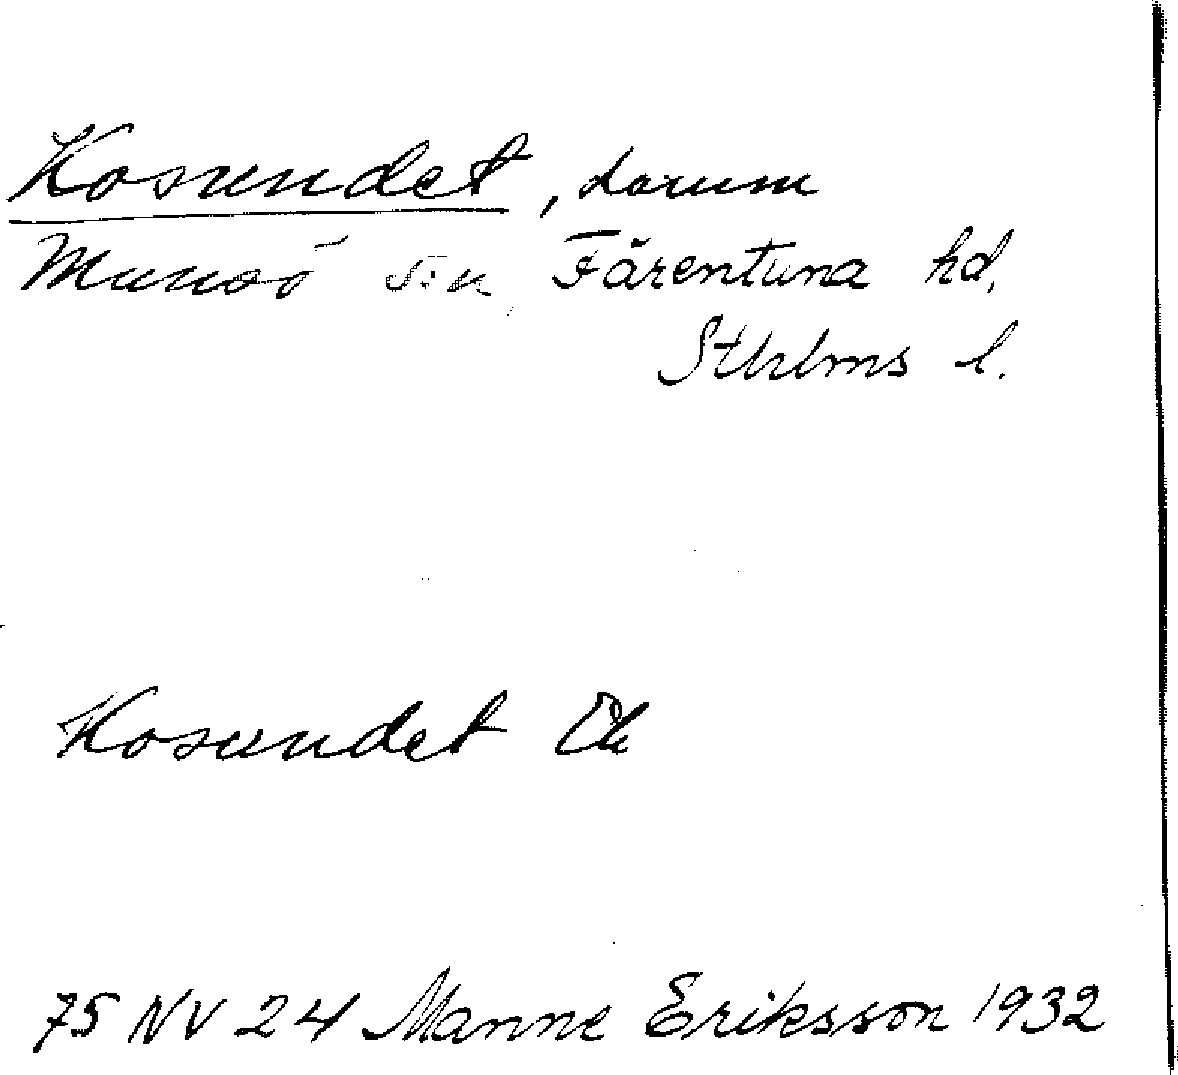 Kosundet, sund
Munsö sn, Färentuna hd,
Sthlms l.
Kosundet Ek
75 NV 24 Manne Eriksson 1932